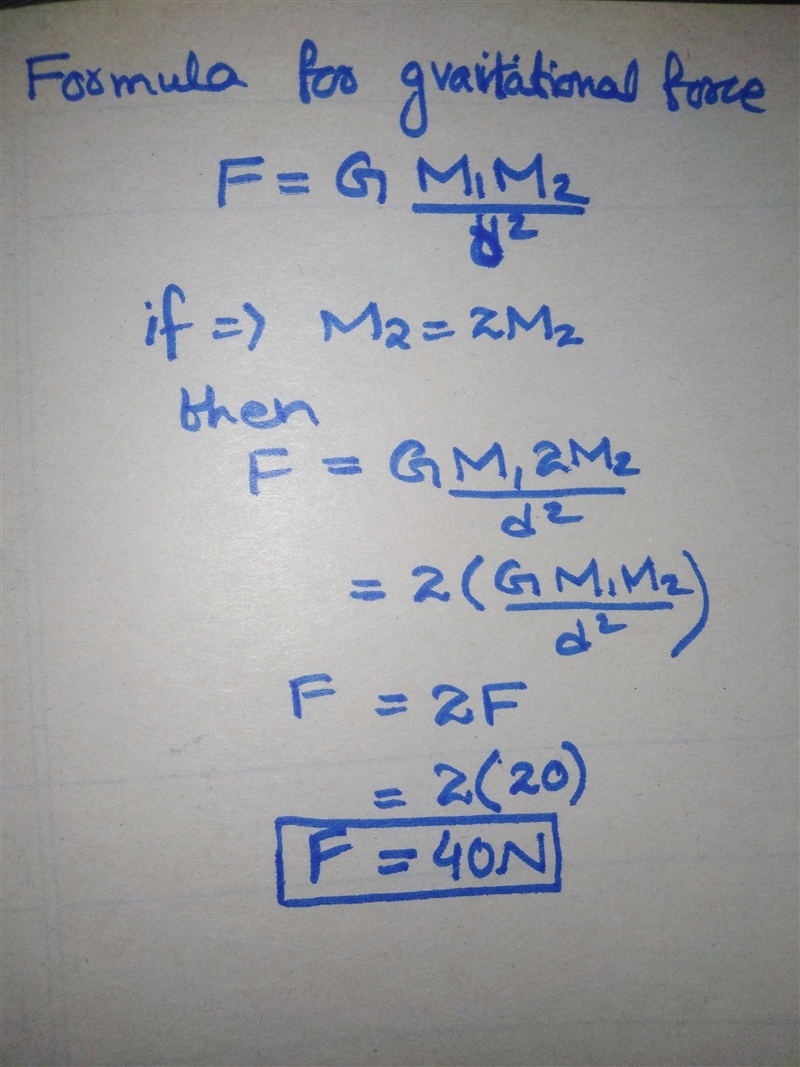 Formula for gvaitational force
F = G M₁M₂ / d²
if => M₂ = 2M₂
then
F = G M₁ 2M₂ / d²
= 2 ( G M₁M₂ / d² )
F = 2F
= 2(20)
F = 40N